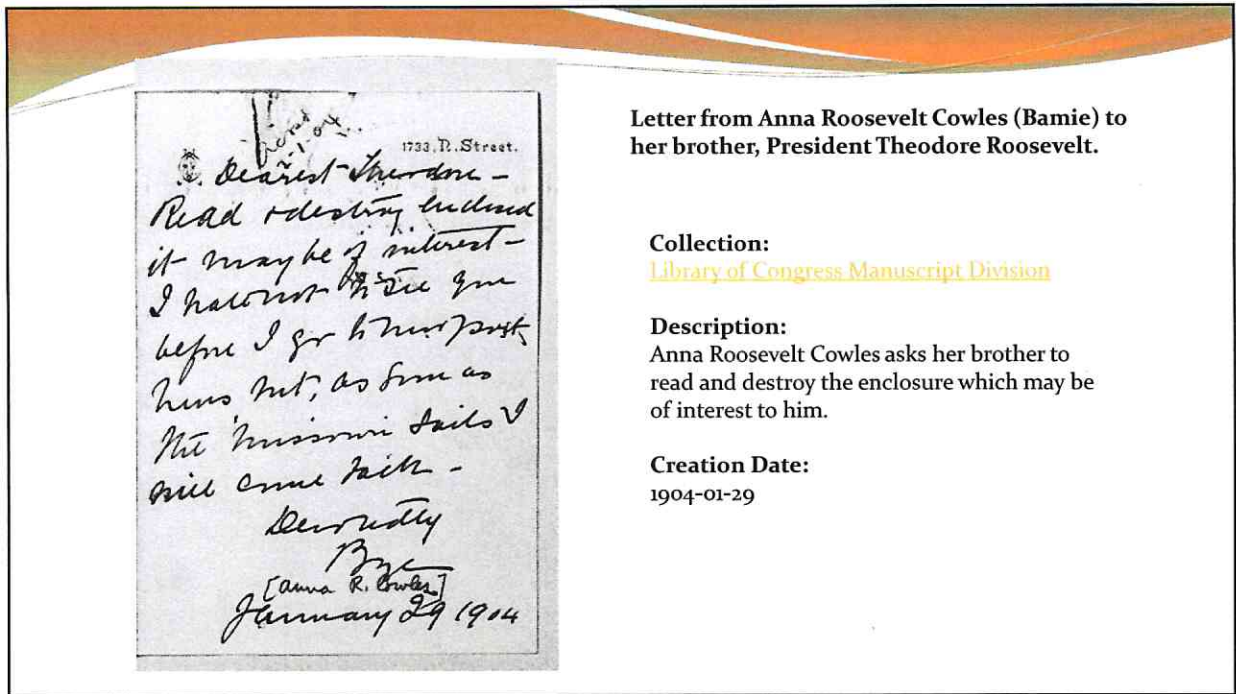 1733, N. Street.
Dearest Theodore -
Read & destroy enclosed
it may be of interest -
I hate not to see you
before I go to Newport
News but, as soon as
the Missouri sails I
will come back -
Devotedly
Bye
[Anna R. Cowles]
January 29 1904
Letter from Anna Roosevelt Cowles (Bamie) to
her brother, President Theodore Roosevelt.
Collection:
Library of Congress Manuscript Division
Description:
Anna Roosevelt Cowles asks her brother to
read and destroy the enclosure which may be
of interest to him.
Creation Date:
1904-01-29